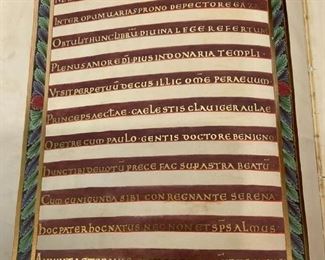 INTER OPUM UARIAS PRONO DE PECTORE GAZAS
OBTULIT HUNC LIBRŪ DIUINA LEGE REFERTUM
PLENUS AMORE DĪ PIUS IN DONARIA TEMPLI
UT SIT PERPETUŪ DECUS ILLIC OMĒ PER AEUUM
PRINCEPS AECLAE CAELESTIS CLAUIGER AULAE
O PETRE CUM PAULO GENTIS DOCTORE BENIGNO
HUNC TIBI DEUOTŪ PRECE FAC SUP ASTRA BEATŪ
CUM CUNIGUNDA SIBI CONREGNANTE SERENA
HOC PATER HOC NATUS NEC NON ET SPS ALMUS